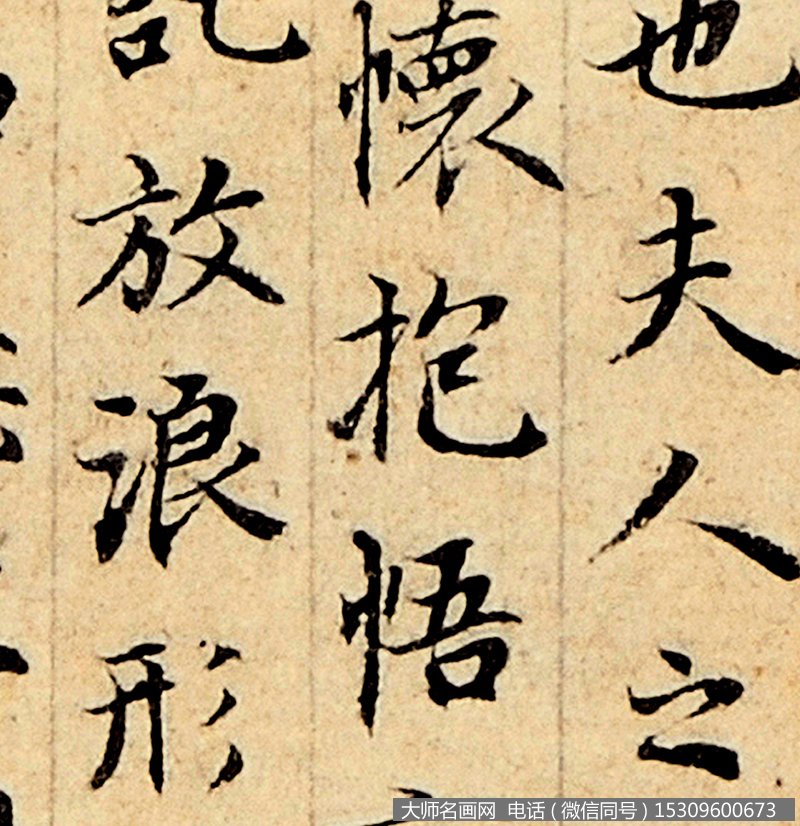 也夫人之
懷抱悟
放浪形
大师名画网 电话(微信同号)15309600673